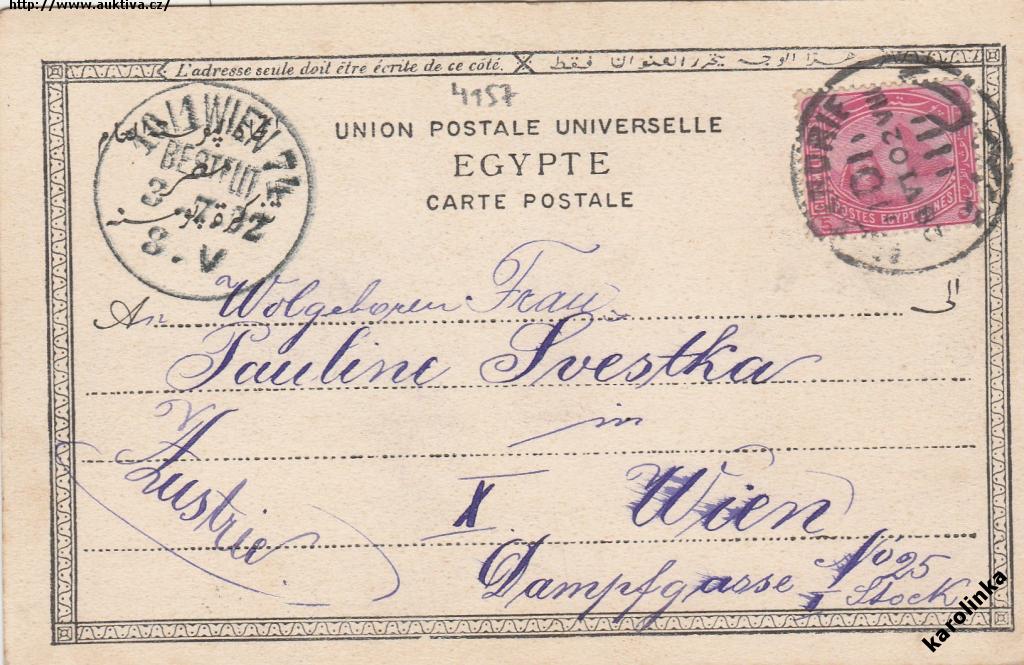 http://www.auktiva.cz/
L'adresse seule doit être écrite de ce côté.
هذا الوجه يحرر العنوان فقط
4157
UNION POSTALE UNIVERSELLE
EGYPTE
CARTE POSTALE
10/1 WIEN 74
BESTELLT
3
8. V
POSTES EGYPTIENNES
An Wolgeboren Frau
الى
Pauline Svestka
in
Austrie
X. Wien
Dampfgasse No 25
I Stock
karolinka